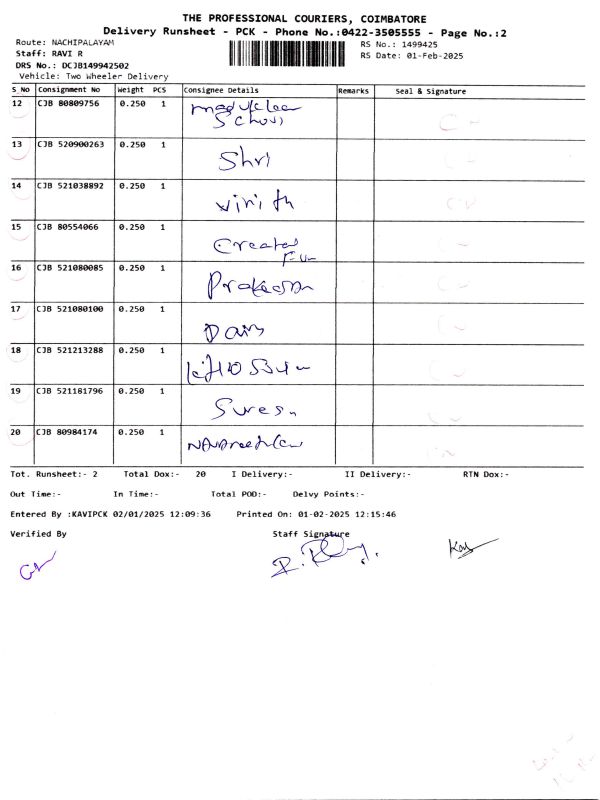 THE PROFESSIONAL COURIERS, COIMBATORE
Delivery Runsheet - PCK - Phone No.:0422-3505555 - Page No.:2
Route: NACHIPALAYAM
RS No.: 1499425
Staff: RAVI R
RS Date: 01-Feb-2025
DRS No.: DCJB149942502
Vehicle: Two Wheeler Delivery
S_No Consignment No Weight PCS Consignee Details Remarks Seal & Signature
12 CJB 80809756 0.250 1
13 CJB 520900263 0.250 1 Shri
14 CJB 521038892 0.250 1
15 CJB 80554066 0.250 1
16 CJB 521080085 0.250 1
17 CJB 521080100 0.250 1
18 CJB 521213288 0.250 1
19 CJB 521181796 0.250 1
20 CJB 80984174 0.250 1
Tot. Runsheet:- 2 Total Dox:- 20 I Delivery:- II Delivery:- RTN Dox:-
Out Time:- In Time:- Total POD:- Delvy Points:-
Entered By :KAVIPCK 02/01/2025 12:09:36 Printed On: 01-02-2025 12:15:46
Verified By Staff Signature